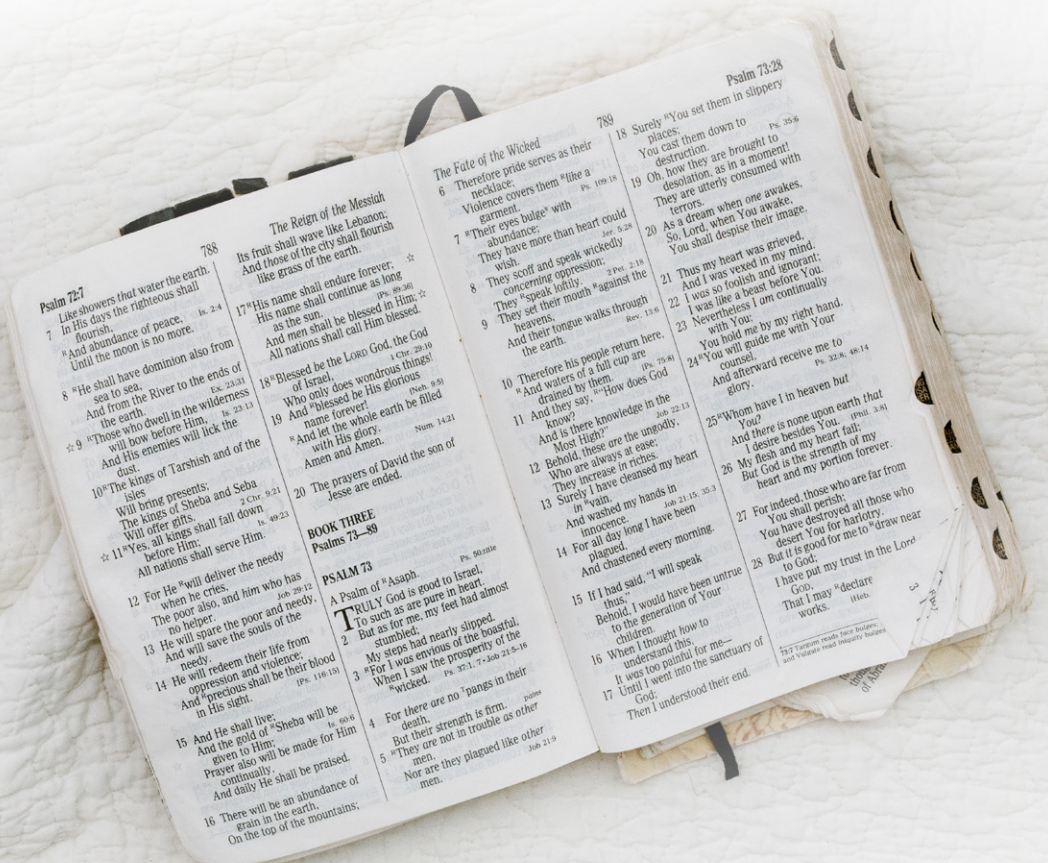 Psalm 72:7
788
Like showers that water the earth.
7 In His days the righteous shall
flourish,
And abundance of peace, Is. 2:4
Until the moon is no more.
8 "He shall have dominion also from
sea to sea,
And from the River to the ends of
the earth. Ex. 23:31
☆9 "Those who dwell in the wilderness
will bow before Him, Is. 23:13
And His enemies will lick the
dust.
10 "The kings of Tarshish and of the
isles
Will bring presents;
The kings of Sheba and Seba
Will offer gifts. 2 Chr. 9:21
☆11 "Yes, all kings shall fall down
before Him; Is. 49:23
All nations shall serve Him.
12 For He "will deliver the needy
when he cries,
The poor also, and him who has
no helper. Job 29:12
13 He will spare the poor and needy,
And will save the souls of the
needy.
14 He will redeem their life from
oppression and violence;
And "precious shall be their blood
in His sight. [Ps. 116:15]
15 And He shall live;
And the gold of "Sheba will be
given to Him; Is. 60:6
Prayer also will be made for Him
continually,
And daily He shall be praised.
16 There will be an abundance of
grain in the earth,
On the top of the mountains;
The Reign of the Messiah
Its fruit shall wave like Lebanon;
And those of the city shall flourish
like grass of the earth.
17 "His name shall endure forever; ☆
His name shall continue as long
as the sun. [Ps. 89:36]
And men shall be blessed in Him; ☆
All nations shall call Him blessed.
18 "Blessed be the LORD God, the God
of Israel, 1 Chr. 29:10
Who only does wondrous things!
19 And "blessed be His glorious
name forever! [Neh. 9:5]
"And let the whole earth be filled
with His glory. Num. 14:21
Amen and Amen.
20 The prayers of David the son of
Jesse are ended.
BOOK THREE
Psalms 73—89
PSALM 73
A Psalm of "Asaph. Ps. 50:title
TRULY God is good to Israel,
To such as are pure in heart.
2 But as for me, my feet had almost
stumbled;
My steps had nearly slipped.
3 "For I was envious of the boastful,
When I saw the prosperity of the
"wicked. Ps. 37:1, 7 • Job 21:5-16
4 For there are no "pangs in their
death, pains
But their strength is firm.
5 "They are not in trouble as other
men,
Nor are they plagued like other
men. Job 21:9
The Fate of the Wicked
789
6 Therefore pride serves as their
necklace;
Violence covers them "like a
garment. Ps. 109:18
7 "Their eyes bulge" with
abundance;
They have more than heart could
wish. Jer. 5:28
8 They scoff and speak wickedly
concerning oppression;
They "speak loftily. 2 Pet. 2:18
9 They set their mouth "against the
heavens,
And their tongue walks through
the earth. Rev. 13:6
10 Therefore his people return here,
"And waters of a full cup are
drained by them. [Ps. 75:8]
11 And they say, "How does God
know?
And is there knowledge in the
Most High?" Job 22:13
12 Behold, these are the ungodly,
Who are always at ease;
They increase in riches.
13 Surely I have cleansed my heart
in "vain,
And washed my hands in
innocence. Job 21:15; 35:3
14 For all day long I have been
plagued,
And chastened every morning.
15 If I had said, "I will speak
thus,"
Behold, I would have been untrue
to the generation of Your
children.
16 When I thought how to
understand this,
It was too painful for me—
17 Until I went into the sanctuary of
God;
Then I understood their end.
Psalm 73:28
18 Surely "You set them in slippery
places;
You cast them down to
destruction. Ps. 35:6
19 Oh, how they are brought to
desolation, as in a moment!
They are utterly consumed with
terrors.
20 As a dream when one awakes,
So, Lord, when You awake,
You shall despise their image.
21 Thus my heart was grieved,
And I was vexed in my mind.
22 I was so foolish and ignorant;
I was like a beast before You.
23 Nevertheless I am continually
with You;
You hold me by my right hand.
24 "You will guide me with Your
counsel,
And afterward receive me to
glory. Ps. 32:8; 48:14
25 "Whom have I in heaven but
You?
And there is none upon earth that
I desire besides You. [Phil. 3:8]
26 My flesh and my heart fail;
But God is the strength of my
heart and my portion forever.
27 For indeed, those who are far from
You shall perish;
You have destroyed all those who
desert You for harlotry.
28 But it is good for me to "draw near
to God;
I have put my trust in the Lord
GOD,
That I may "declare
works. [Heb.
73:7 Targum reads face bulges;
and Vulgate read iniquity bulges
of Abra